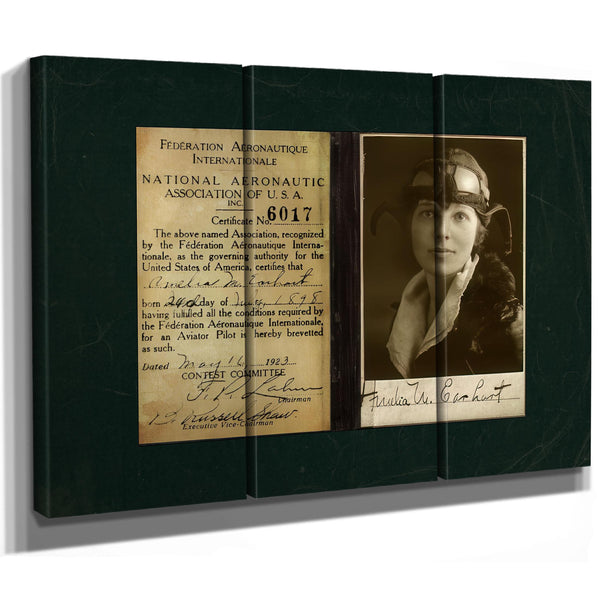 FÉDÉRATION AÉRONAUTIQUE
INTERNATIONALE
NATIONAL AERONAUTIC
ASSOCIATION OF U.S.A.
INC.
Certificate No. 6017
The above named Association, recognized
by the Fédération Aéronautique Interna-
tionale, as the governing authority for the
United States of America, certifies that
Amelia M. Earhart
born day of July, 1898
having fulfilled all the conditions required by
the Fédération Aéronautique Internationale,
for an Aviator Pilot is hereby brevetted
as such.
Dated May 16 1923
CONTEST COMMITTEE
F. P. Lahm
Chairman
B. Russell Shaw.
Executive Vice-Chairman
Amelia M. Earhart